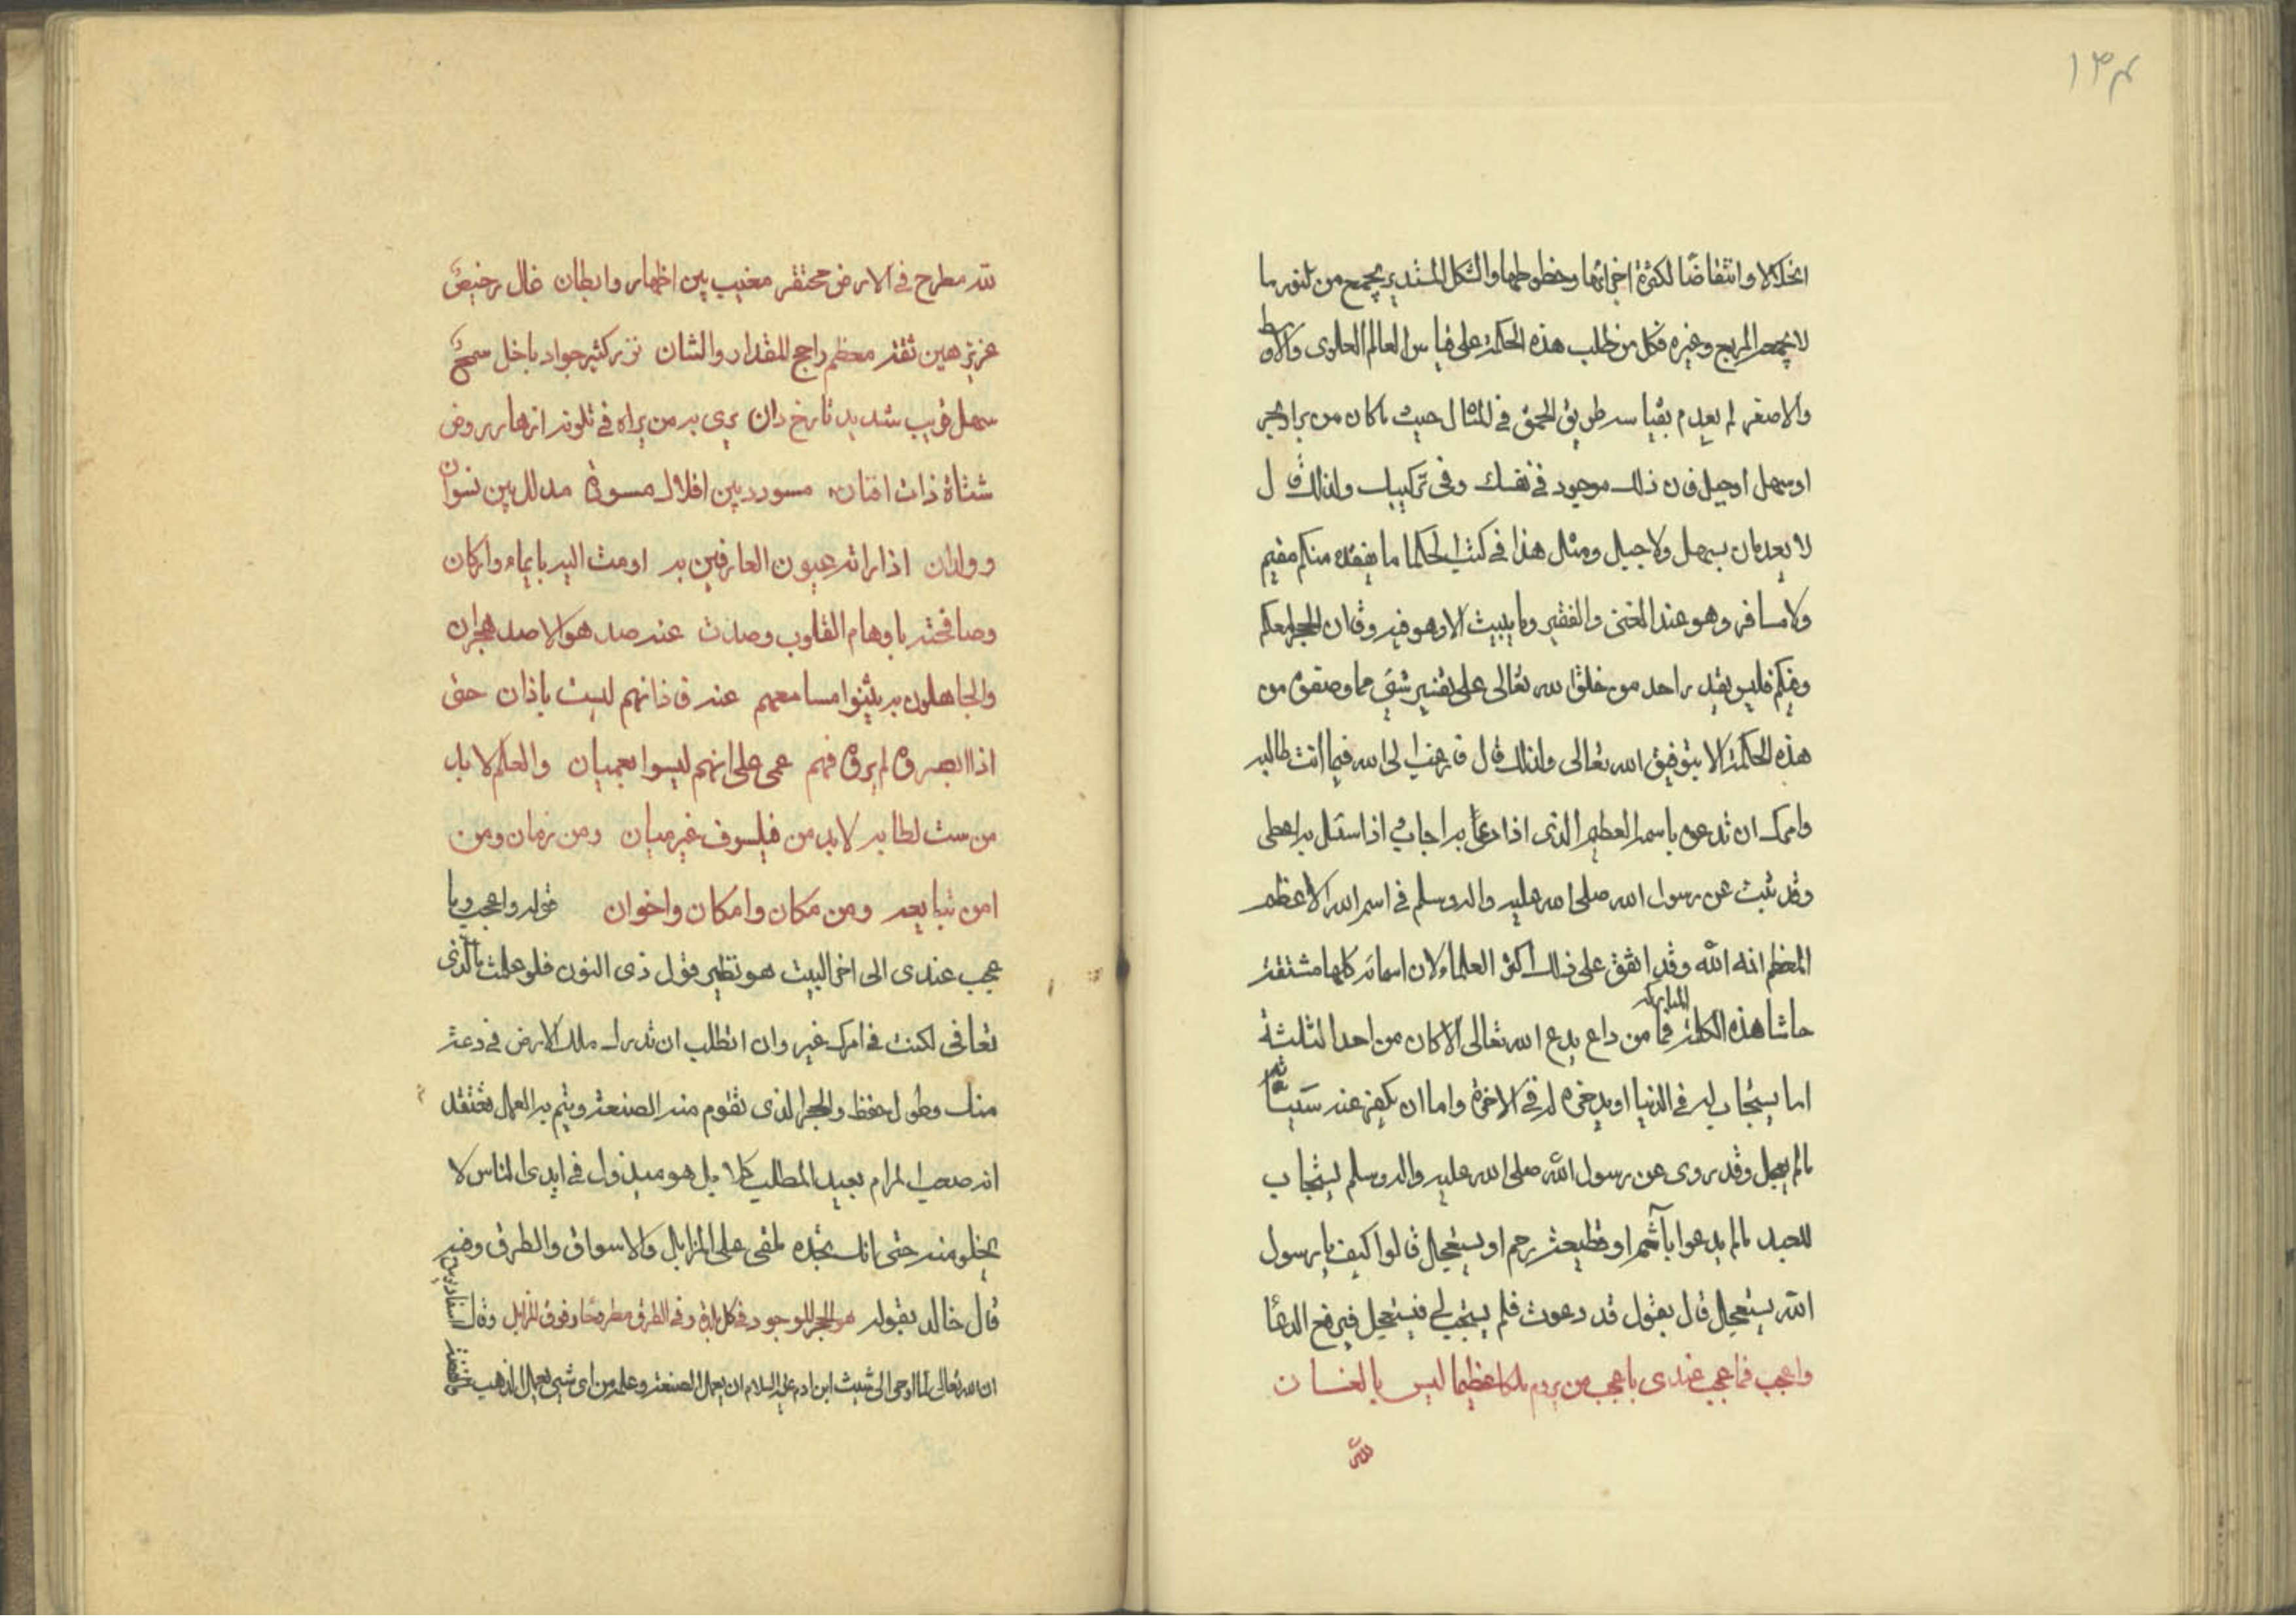 ١٣٤
انحلالا وانتفاضًا لكثرة اجزائها وخطوطها والشكل المستدير يجمع من النور ما
لا يجمعه المربع وغيره فكل من طلب هذه الحكمة على قياس العالم العلوى والاوسط
والاصغر لم يعدم بقياسه طريق الحق فى المثال حيث ما كان من براوبحر
او سهل او جبل فان ذلك موجود فى نفسك وفى تركيبك ولذلك قال
لا يعدمان بسهل ولا جبل ومثل هذا فى كتب الحكما ما يفقده منكم مقيم
ولا مسافر وهو عند الغنى والفقير وما يبيت الا وهو فيه وقال الحجر معكم
وفيكم فليس يقدر احد من خلق الله تعالى على تغيير شئ مما وصفوه من
هذه الحكمة الا بتوفيق الله تعالى ولذلك قال فارغب الى الله فيما انت طالبه
وامرك ان تدعوه باسمه العظيم الذى اذا دعى به اجاب واذا سئل به اعطى
وقد ثبت عن رسول الله صلى الله عليه واله وسلم فى اسم الله الاعظم
المعظم انه الله وقد اتفق على ذلك اكثر العلماء لان اسمائه كلها مشتقة
حاشا هذه الكلمة المباركة فما من داع يدع الله تعالى الا كان من احدا لثلثة
اما يستجاب له فى الدنيا او يدخره له فى الاخرة واما ان يكفر عنه سيئاته
مالم يعجل وقد روى عن رسول الله صلى الله عليه واله وسلم يستجاب
للعبد مالم يدعوا باثم او قطيعة رحم او يستعجل قالوا كيف يا رسول
الله يستعجل قال يقول قد دعوت فلم يستجب لى فيستعجل فيرفع الدعا
واعجب فما عجب عندى باعجب من يروم ملكا عظيما ليس بالعنسان
لله
لله مطرح فى الارض محتقر مغيب بين اظهار وابطان غال رخيص
عزيز هين ثقة معظم راجح المقدار والشان نزر كثير جواد باخل سمج
سهل قريب شديد نازح دان يرى به من يراه فى تلونه ازهار روض
شتاة ذات افنان مسودد بين اقلال مسودة مدلل بين نسوان
وولدان اذا راته عيون العارفين به اومت اليه بايماء واركان
وصافحته باوهام القلوب وصدت عند صد هوالا صد هجران
والجاهلون به يثنوا مسامعهم عنه فاذانهم ليست باذان حتى
اذا ابصروه لم يروه فهم عمى على انهم ليسوا بعميان والعلم لابد
من ست لطالبه لابد من فيلسوف غير ميان ومن زمان ومن
امن تتابعه ومن مكان وامكان واخوان قوله واعجب وما
عجب عندى الى اخر البيت هو نظير قول ذى النون فلو علمت بالذى
تعافى لكنت فى امرك غير وان اتطلب ان تدرك ملك الارض فى دعة
منك وطول خفظ والحجر الذى تقوم منه الصنعة ويتم به العمل تعتقد
انه صعب المرام بعيد المطلب كلا بل هو مبذول فى ايدى الناس لا
يخلو منه حتى انك تجده ملقى على المزابل والاسواق والطرق وفيه
قال خالد بقوله هو الحجر الموجود فى كل بلدة وفى الطرق مطروحا وفوق المزابل وقال
ان الله تعالى لما اوحى الى شيث ابن ادم عليه السلام ان يعمل الصنعة وعلمه من اى شئ يعمل الذهب